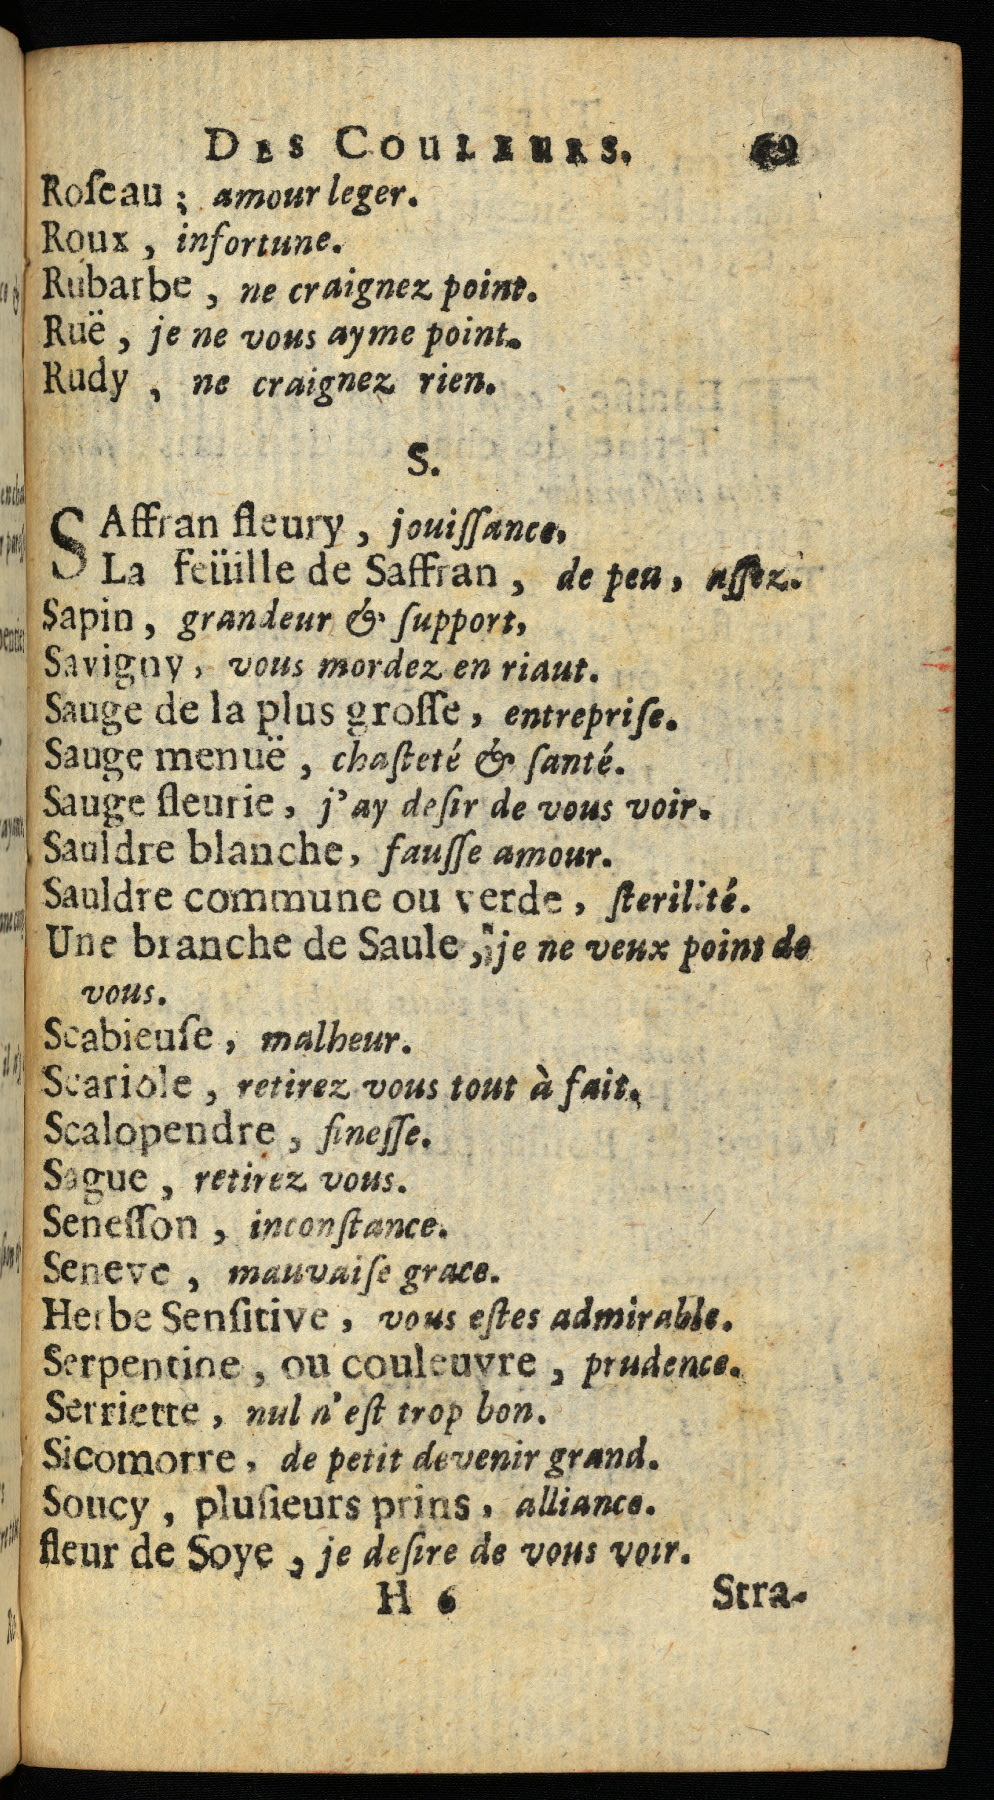 DES COULEURS. 69
Roſeau ; amour leger.
Roux , infortune.
Rubarbe , ne craignez point.
Ruë , je ne vous ayme point.
Rudy , ne craignez rien.
S.
SAffran fleury , jouiſſance,
La feüille de Saffran , de peu , aſſez.
Sapin , grandeur & ſupport,
Savigny , vous mordez en riaut.
Sauge de la plus groſſe , entrepriſe.
Sauge menuë , chaſteté & ſanté.
Sauge fleurie , j'ay deſir de vous voir.
Sauldre blanche , fauſſe amour.
Sauldre commune ou verde , ſterilité.
Une branche de Saule , je ne veux point de
vous.
Scabieuſe , malheur.
Scariole , retirez vous tout à fait.
Scalopendre , fineſſe.
Sague , retirez vous.
Seneſſon , inconſtance.
Seneve , mauvaiſe grace.
Herbe Senſitive , vous eſtes admirable.
Serpentine , ou couleuvre , prudence.
Serriette , nul n'eſt trop bon.
Sicomorre , de petit devenir grand.
Soucy , pluſieurs prins , alliance.
fleur de Soye , je deſire de vous voir.
H 6 Stra-